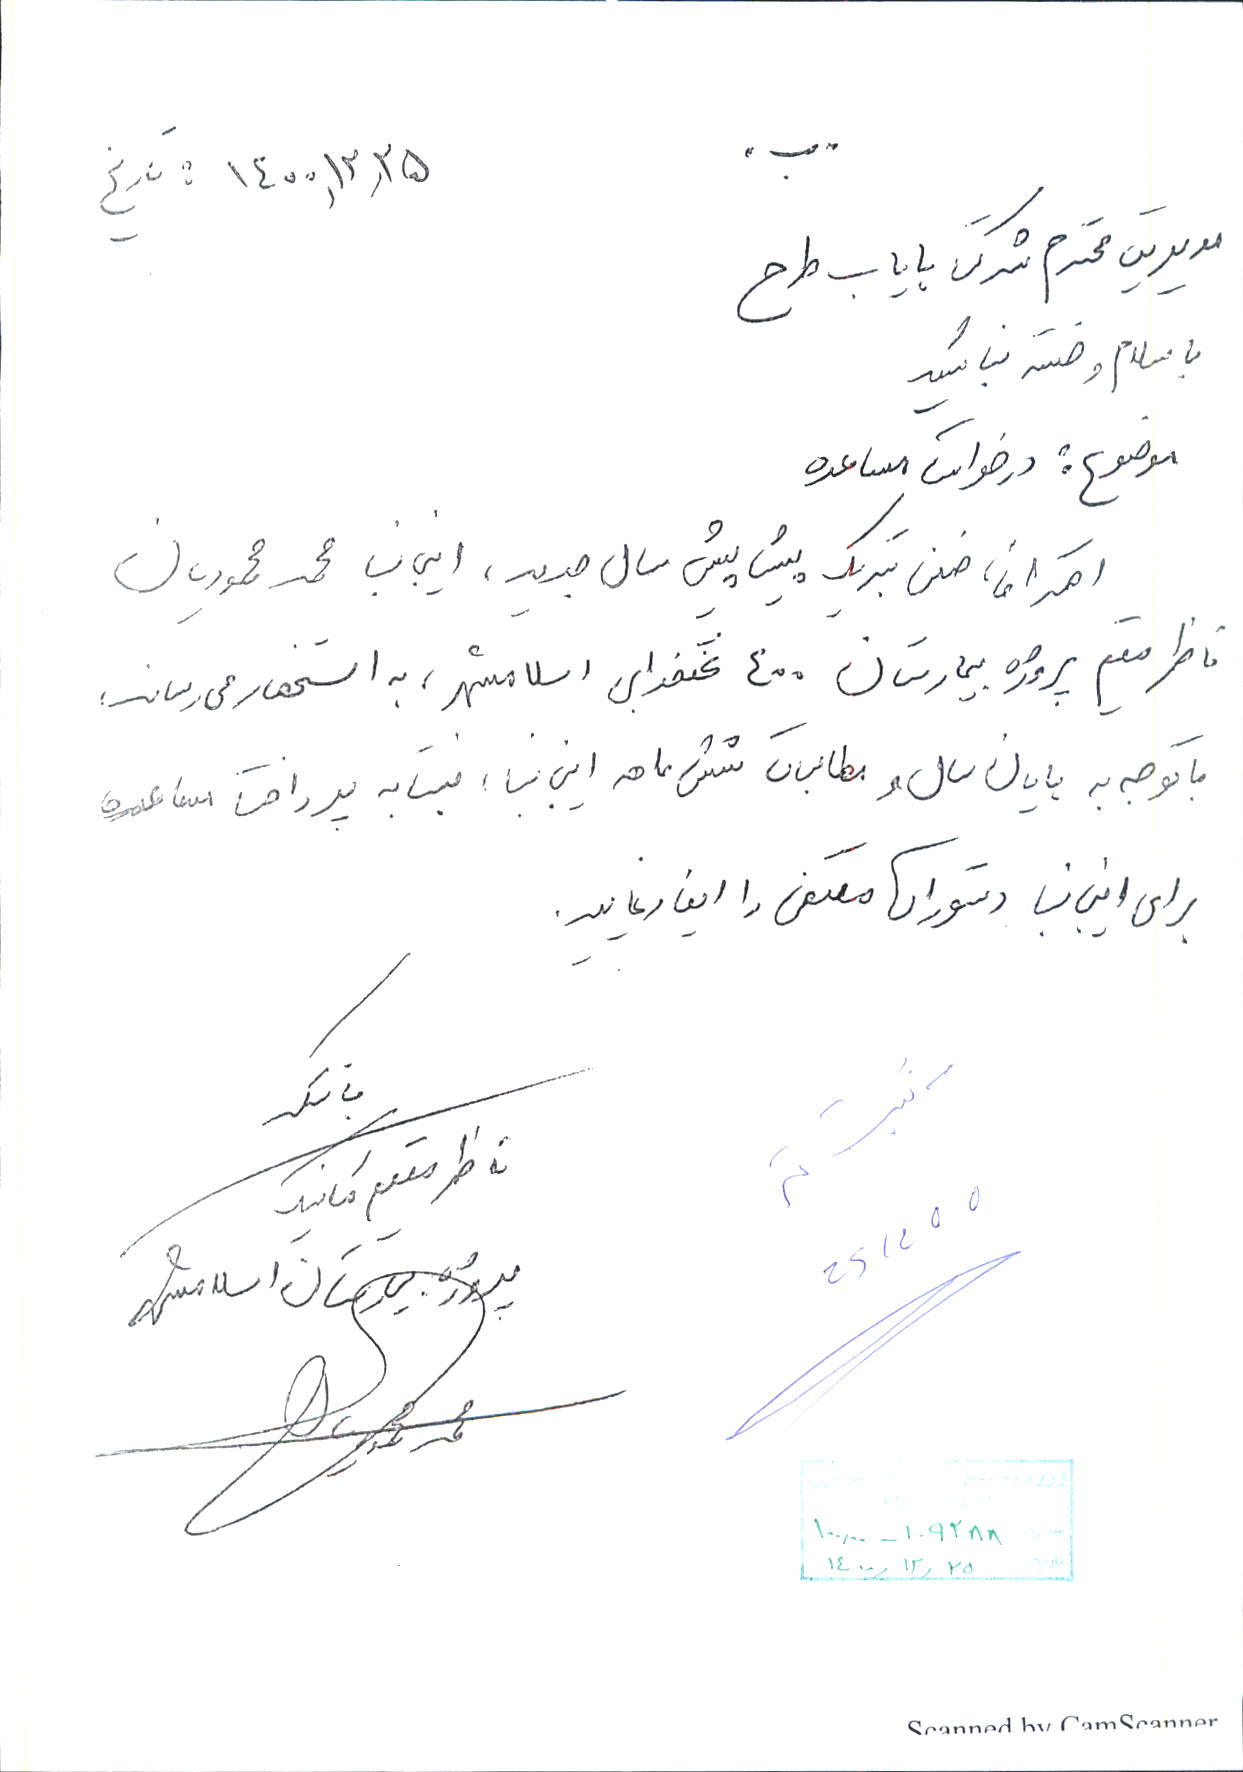 "ب"
تاریخ: ۱۴۰۰,۱۲,۲۵
مدیریت محترم شرکت پایاب طرح
با سلام و خسته نباشید
موضوع: درخواست مساعده
احتراما، ضمن تبریک پیشاپیش سال جدید، اینجانب محمد محمودیان
ناظر مقیم پروژه بیمارستان ۴۰۰ تختخوابی اسلامشهر، به استحضار می رساند،
با توجه به پایان سال و مطالبات شش ماهه اینجانب، نسبت به پرداخت مساعده
برای اینجانب دستورات مقتضی را ایفاد نمایید.
با تشکر
ناظر مقیم مکانیک
پروژه بیمارستان اسلامشهر
محمد محمودیان
ثبت
۱۰۰,۰۰ - ۱۰۹۲۸۸
تاریخ
۱۴۰۰, ۱۲, ۲۵
Scanned by CamScanner